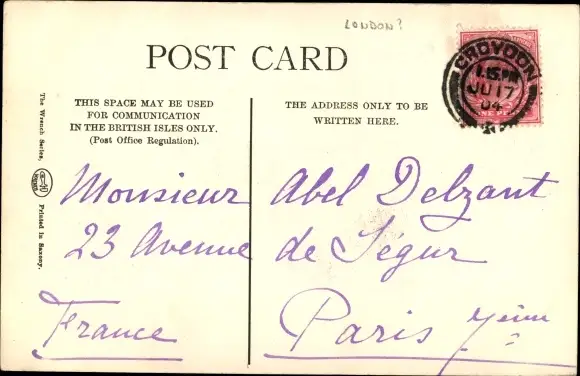 LONDON?
POST CARD
CROYDON
1.15 PM
JU 17
04
THIS SPACE MAY BE USED
FOR COMMUNICATION
IN THE BRITISH ISLES ONLY.
(Post Office Regulation).
THE ADDRESS ONLY TO BE
WRITTEN HERE.
The Wrench Series,
Printed in Saxony.
Monsieur Abel Delzant
23 Avenue de Ségur
France Paris 7eme